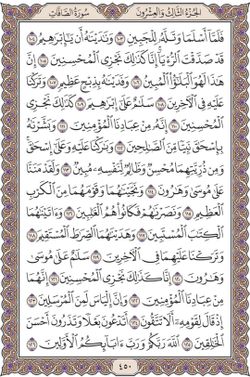 الجُزْءُ الثَّالِثُ وَالعِشْرُونَ سُورَةُ الصَّافَّاتِ
فَلَمَّآ أَسْلَمَا وَتَلَّهُۥ لِلْجَبِينِ ١٠٣ وَنَٰدَيْنَٰهُ أَن يَٰٓإِبْرَٰهِيمُ ١٠٤
قَدْ صَدَّقْتَ ٱلرُّءْيَآ إِنَّا كَذَٰلِكَ نَجْزِى ٱلْمُحْسِنِينَ ١٠٥ إِنَّ
هَٰذَا لَهُوَ ٱلْبَلَٰٓؤُا۟ ٱلْمُبِينُ ١٠٦ وَفَدَيْنَٰهُ بِذِبْحٍ عَظِيمٍ ١٠٧ وَتَرَكْنَا
عَلَيْهِ فِى ٱلْءَاخِرِينَ ١٠٨ سَلَٰمٌ عَلَىٰٓ إِبْرَٰهِيمَ ١٠٩ كَذَٰلِكَ نَجْزِى
ٱلْمُحْسِنِينَ ١١٠ إِنَّهُۥ مِنْ عِبَادِنَا ٱلْمُؤْمِنِينَ ١١١ وَبَشَّرْنَٰهُ
بِإِسْحَٰقَ نَبِيًّا مِّنَ ٱلصَّٰلِحِينَ ١١٢ وَبَٰرَكْنَا عَلَيْهِ وَعَلَىٰٓ إِسْحَٰقَ
وَمِن ذُرِّيَّتِهِمَا مُحْسِنٌ وَظَالِمٌ لِّنَفْسِهِۦ مُبِينٌ ١١٣ وَلَقَدْ مَنَنَّا
عَلَىٰ مُوسَىٰ وَهَٰرُونَ ١١٤ وَنَجَّيْنَٰهُمَا وَقَوْمَهُمَا مِنَ ٱلْكَرْبِ
ٱلْعَظِيمِ ١١٥ وَنَصَرْنَٰهُمْ فَكَانُوا۟ هُمُ ٱلْغَٰلِبِينَ ١١٦ وَءَاتَيْنَٰهُمَا
ٱلْكِتَٰبَ ٱلْمُسْتَبِينَ ١١٧ وَهَدَيْنَٰهُمَا ٱلصِّرَٰطَ ٱلْمُسْتَقِيمَ ١١٨
وَتَرَكْنَا عَلَيْهِمَا فِى ٱلْءَاخِرِينَ ١١٩ سَلَٰمٌ عَلَىٰ مُوسَىٰ
وَهَٰرُونَ ١٢٠ إِنَّا كَذَٰلِكَ نَجْزِى ٱلْمُحْسِنِينَ ١٢١ إِنَّهُمَا
مِنْ عِبَادِنَا ٱلْمُؤْمِنِينَ ١٢٢ وَإِنَّ إِلْيَاسَ لَمِنَ ٱلْمُرْسَلِينَ ١٢٣
إِذْ قَالَ لِقَوْمِهِۦٓ أَلَا تَتَّقُونَ ١٢٤ أَتَدْعُونَ بَعْلًا وَتَذَرُونَ أَحْسَنَ
ٱلْخَٰلِقِينَ ١٢٥ ٱللَّهَ رَبَّكُمْ وَرَبَّ ءَابَآئِكُمُ ٱلْأَوَّلِينَ ١٢٦
٤٥٠